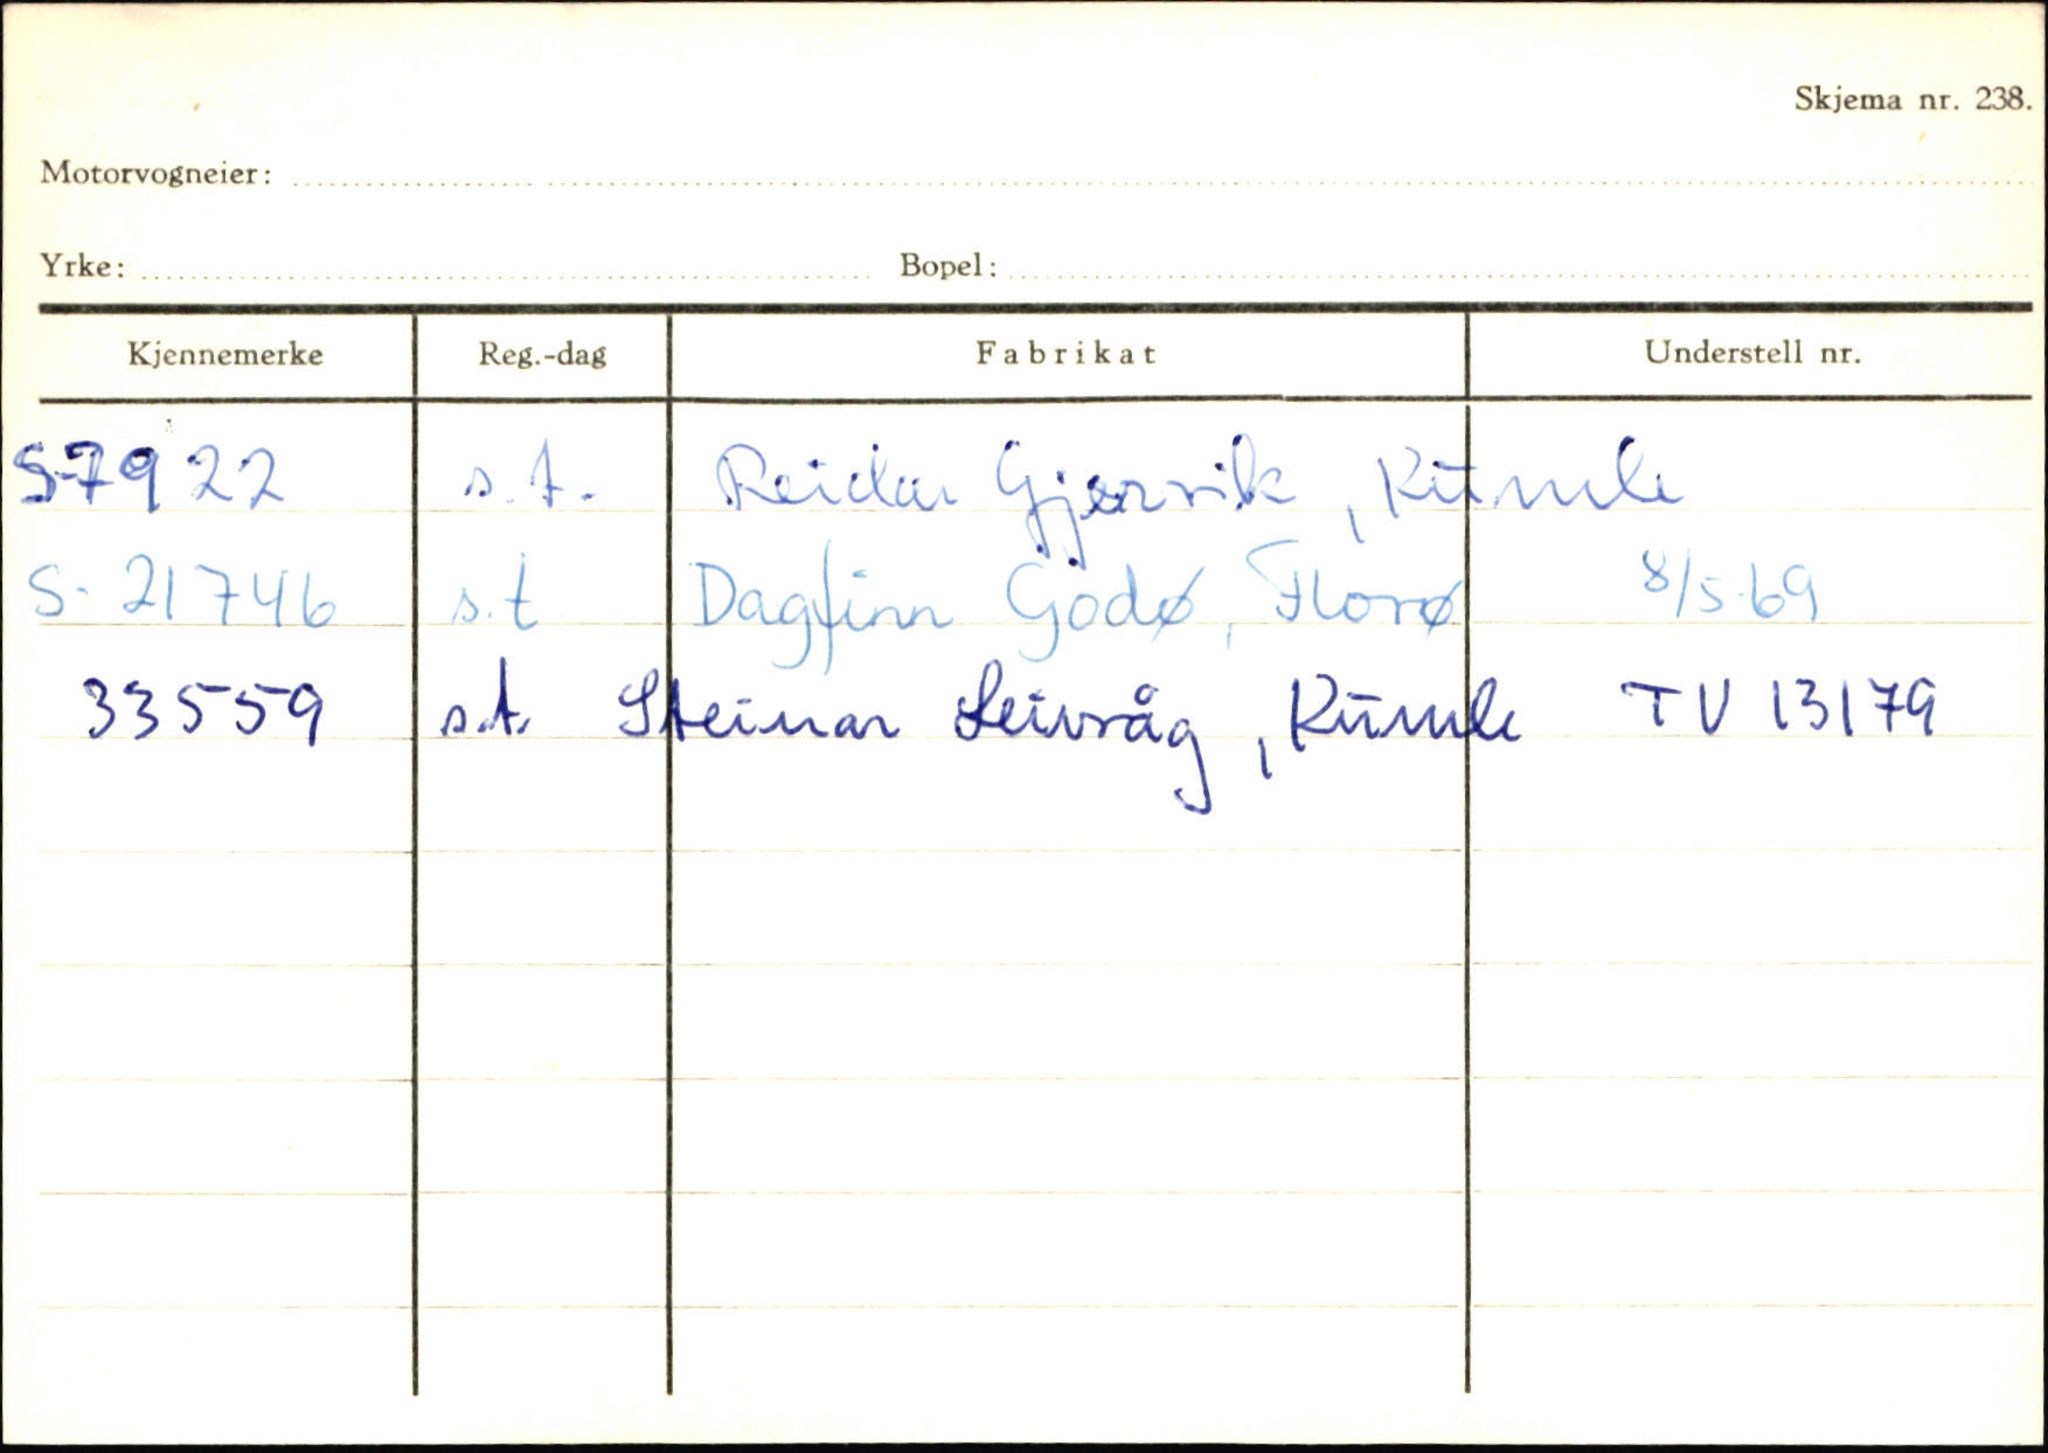 Skjema nr. 238.
Motorvogneier:
Yrke: Bopel:
Kjennemerke Reg.-dag Fabrikat Understell nr.
S-7922 s.t. Reidar Gjervik, Kinnli
S-21746 s.t Dagfinn Godø, Florø 8/5-69
33559 s.t. Steinar Leivråg, TV 13179